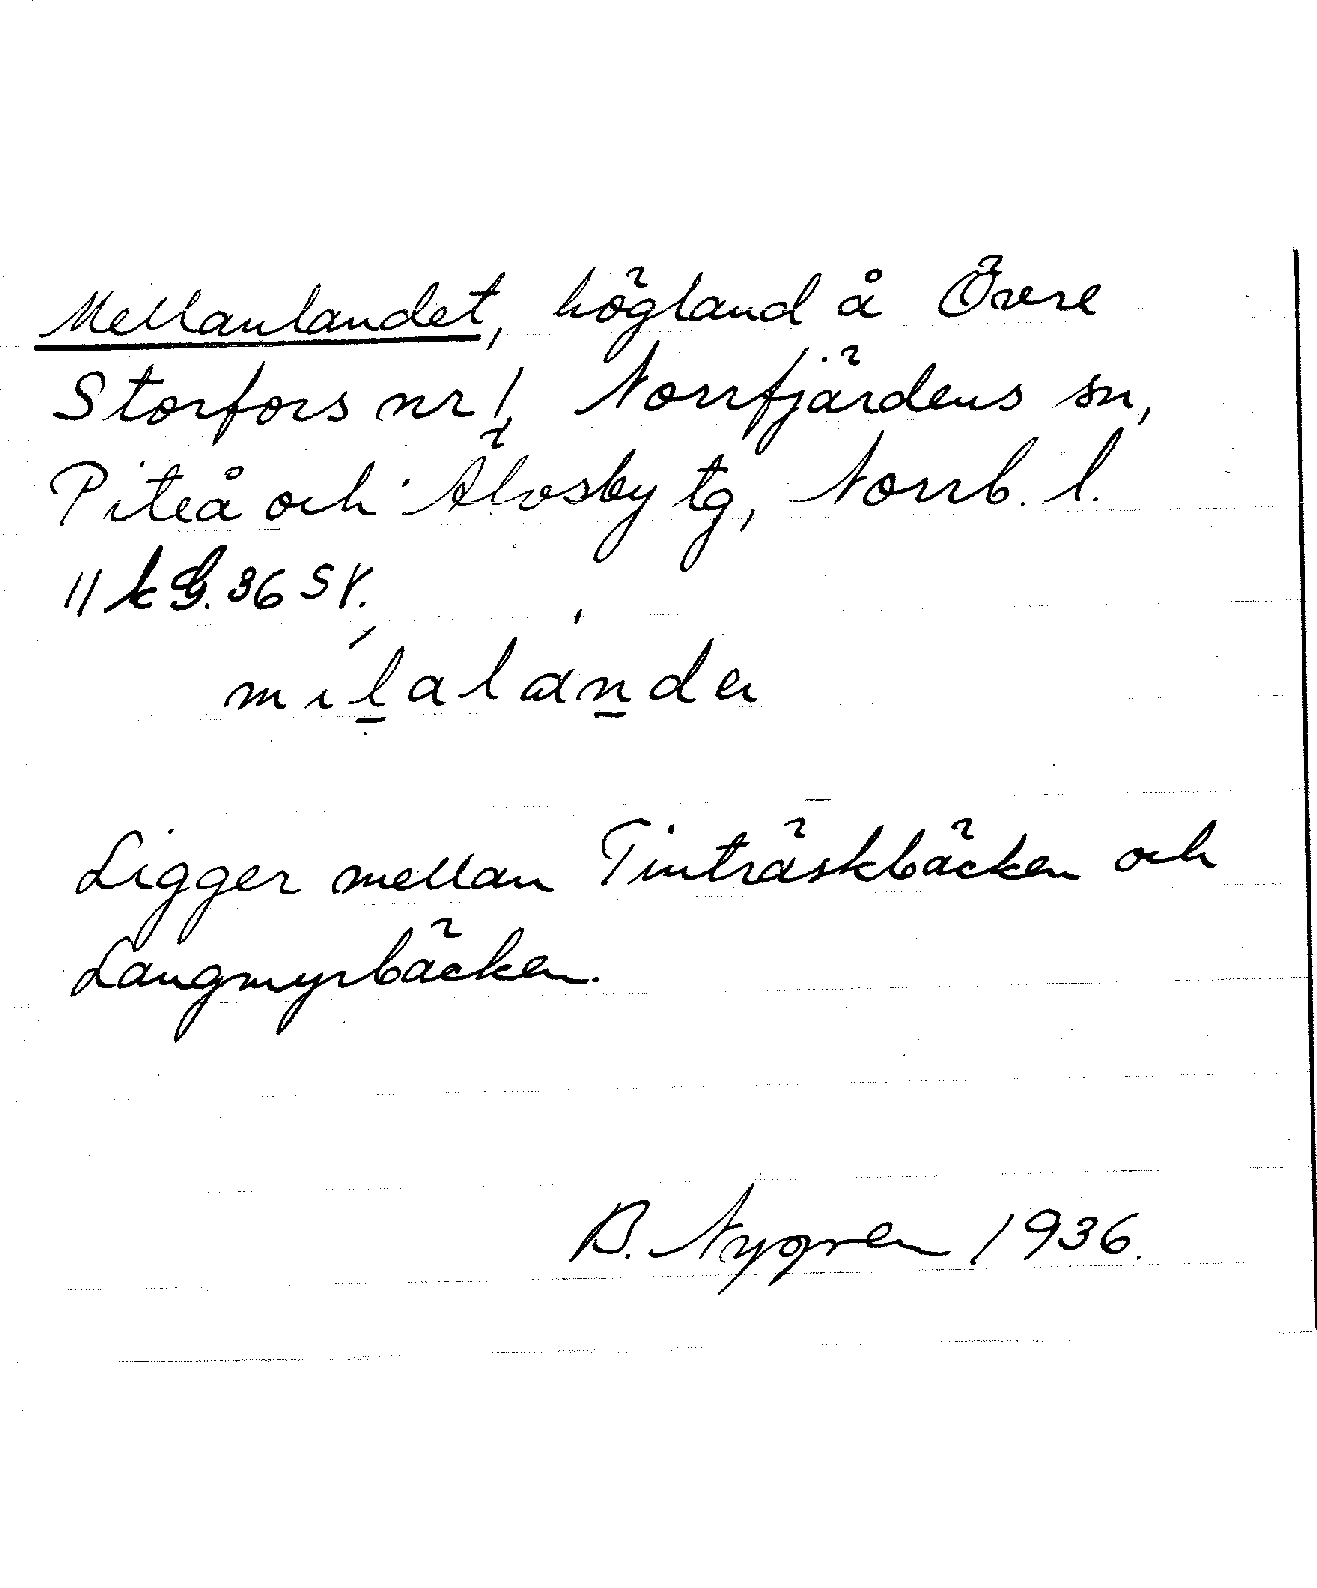 Mellanlandet, högland å Övre
Storfors nr 1, Norrfjärdens sn,
Piteå och Älvsby tg, Norrb. l.
11 k G. 36 SV.
mılalander
Ligger mellan Tinträskbäcken och
Långmyrbäcken.
B. Nygren 1936.